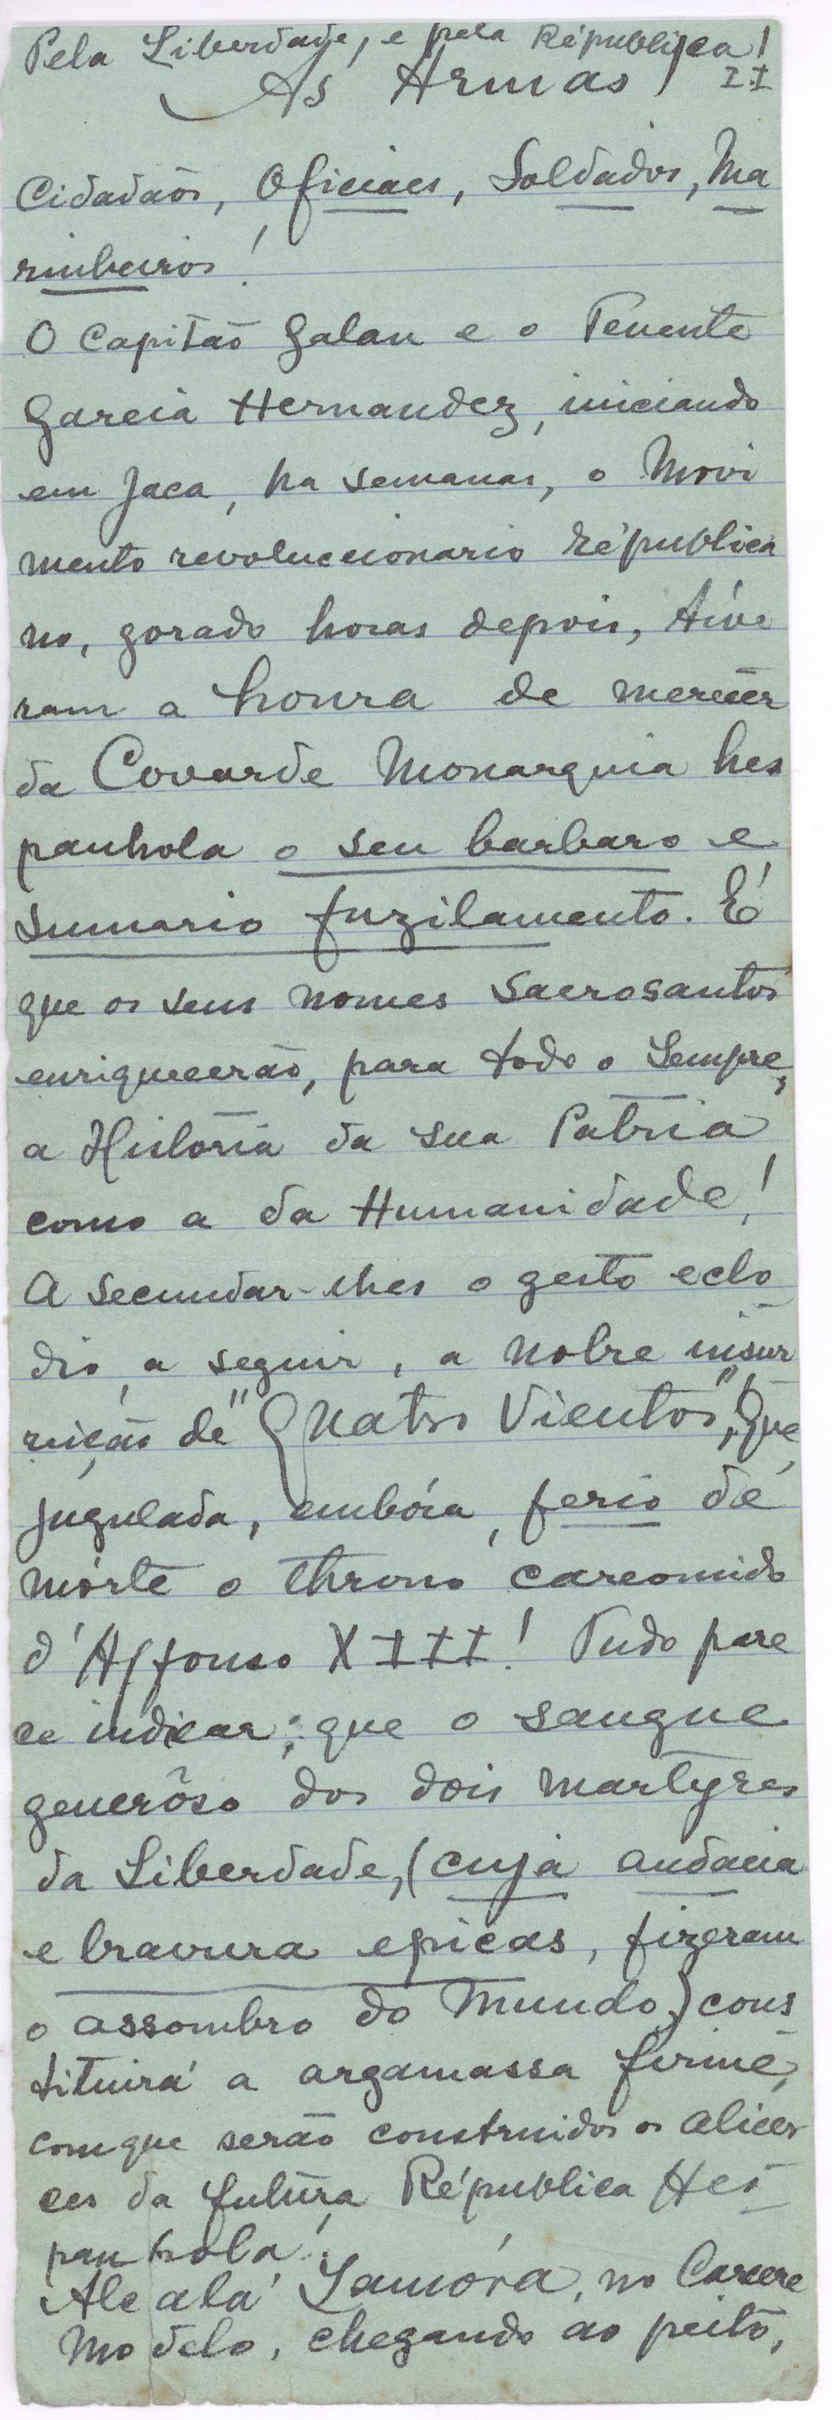 Pela Liberdade, e pela Répública!
Às Armas! I.I
Cidadãos, Oficiaes, Soldados, Ma
rinheiros!
O Capitão Galan e o Tenente
Garcia Hernandez, iniciando
em Jaca, ha semanas, o Movi
mento revoluccionario Républica
no, gorado horas depois, tive
ram a honra de merecêr
da Covarde Monarquia hes
panhola o seu barbaro e
sumario fuzilamento. É
que os seus nomes Sacrosantos
enriquecerão, para todo o Sempre,
a Historia da sua Patria
como a da Humanidade!
A secundar-lhes o gesto eclo
dio, a seguir, a nobre insur
reição de "Quatro Vientos", que,
jugulada, embóra, ferio de
mórte o throno carcomido
d'Affonso XIII! Tudo pare
ce indicar; que o sangue
generôso dos dois martyres
da Liberdade, (cuja audacia
e bravura epicas, fizeram
o assombro do Mundo,) cons
tituirá a argamassa firme,
com que serão construidos os alicer
ces da futura Répública Hes
panhola!
Alcalá Zamóra, no Carcere
Modelo, chegando ao peito,